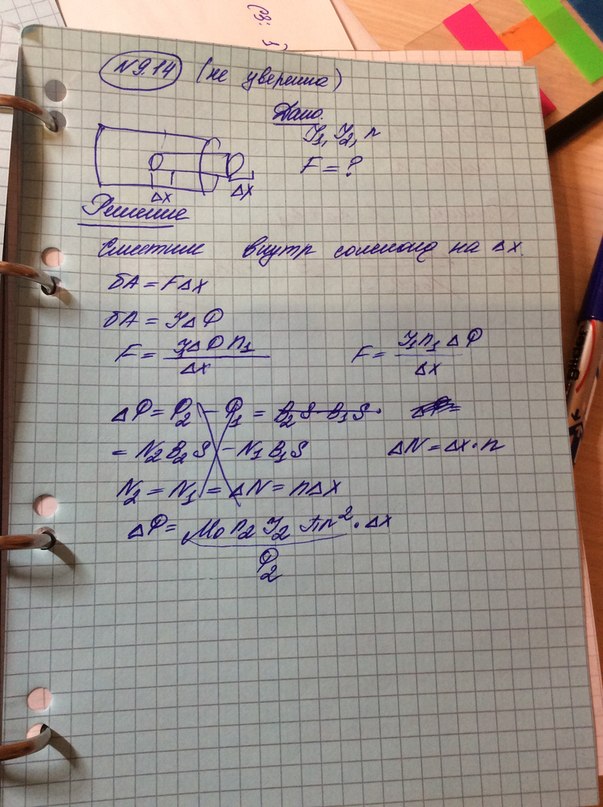 N9.14 (не уверенна)
Дано.
I₁, I₂, n
F = ?
Δx
Δx
Решение
Сместим внутр соленоид на Δx.
δA = FΔx
δA = IΔФ
F = IΔФn₁/Δx
F = I₁n₁ΔФ/Δx
ΔФ = Ф₂ - Ф₁ = B₂S - B₁S.
= N₂B₂S - N₁B₁S
ΔN = Δx·n
N₂ = N₁ = ΔN = nΔx
ΔФ = μ₀n₂I₂πr²·Δx
Ф₂